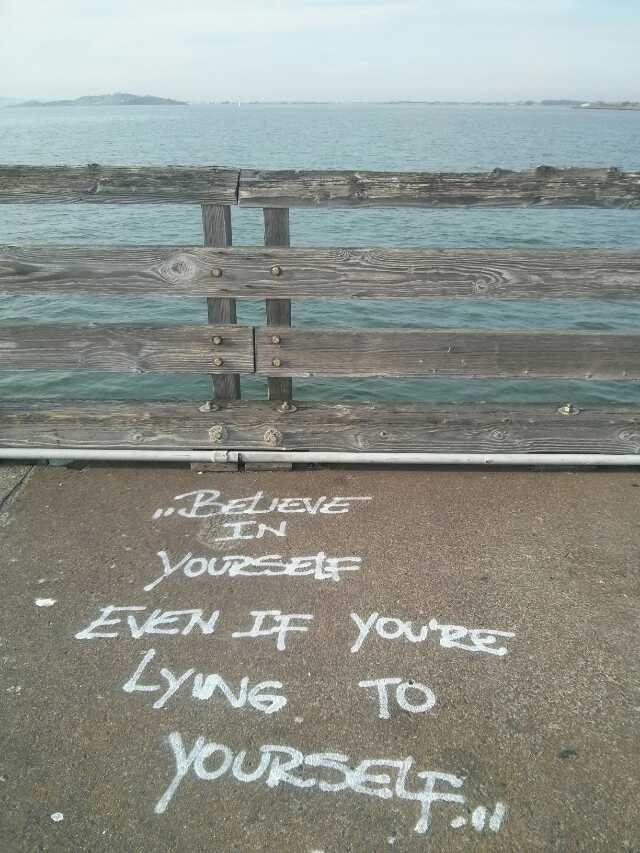 ,,BELIEVE
IN
YOURSELF
EVEN IF YOU'RE
LYING TO
YOURSELF."